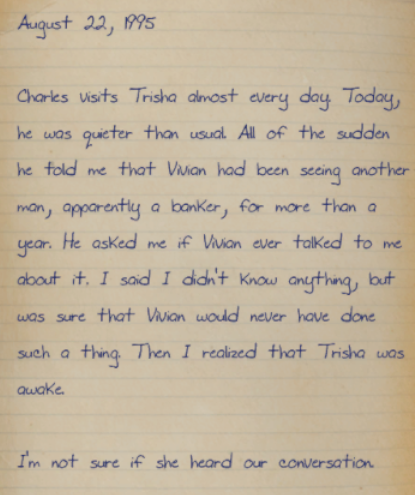 August 22, 1995
Charles visits Trisha almost every day. Today,
he was quieter than usual. All of the sudden
he told me that Vivian had been seeing another
man, apparently a banker, for more than a
year. He asked me if Vivian ever talked to me
about it. I said I didn't know anything, but
was sure that Vivian would never have done
such a thing. Then I realized that Trisha was
awake.
I'm not sure if she heard our conversation.